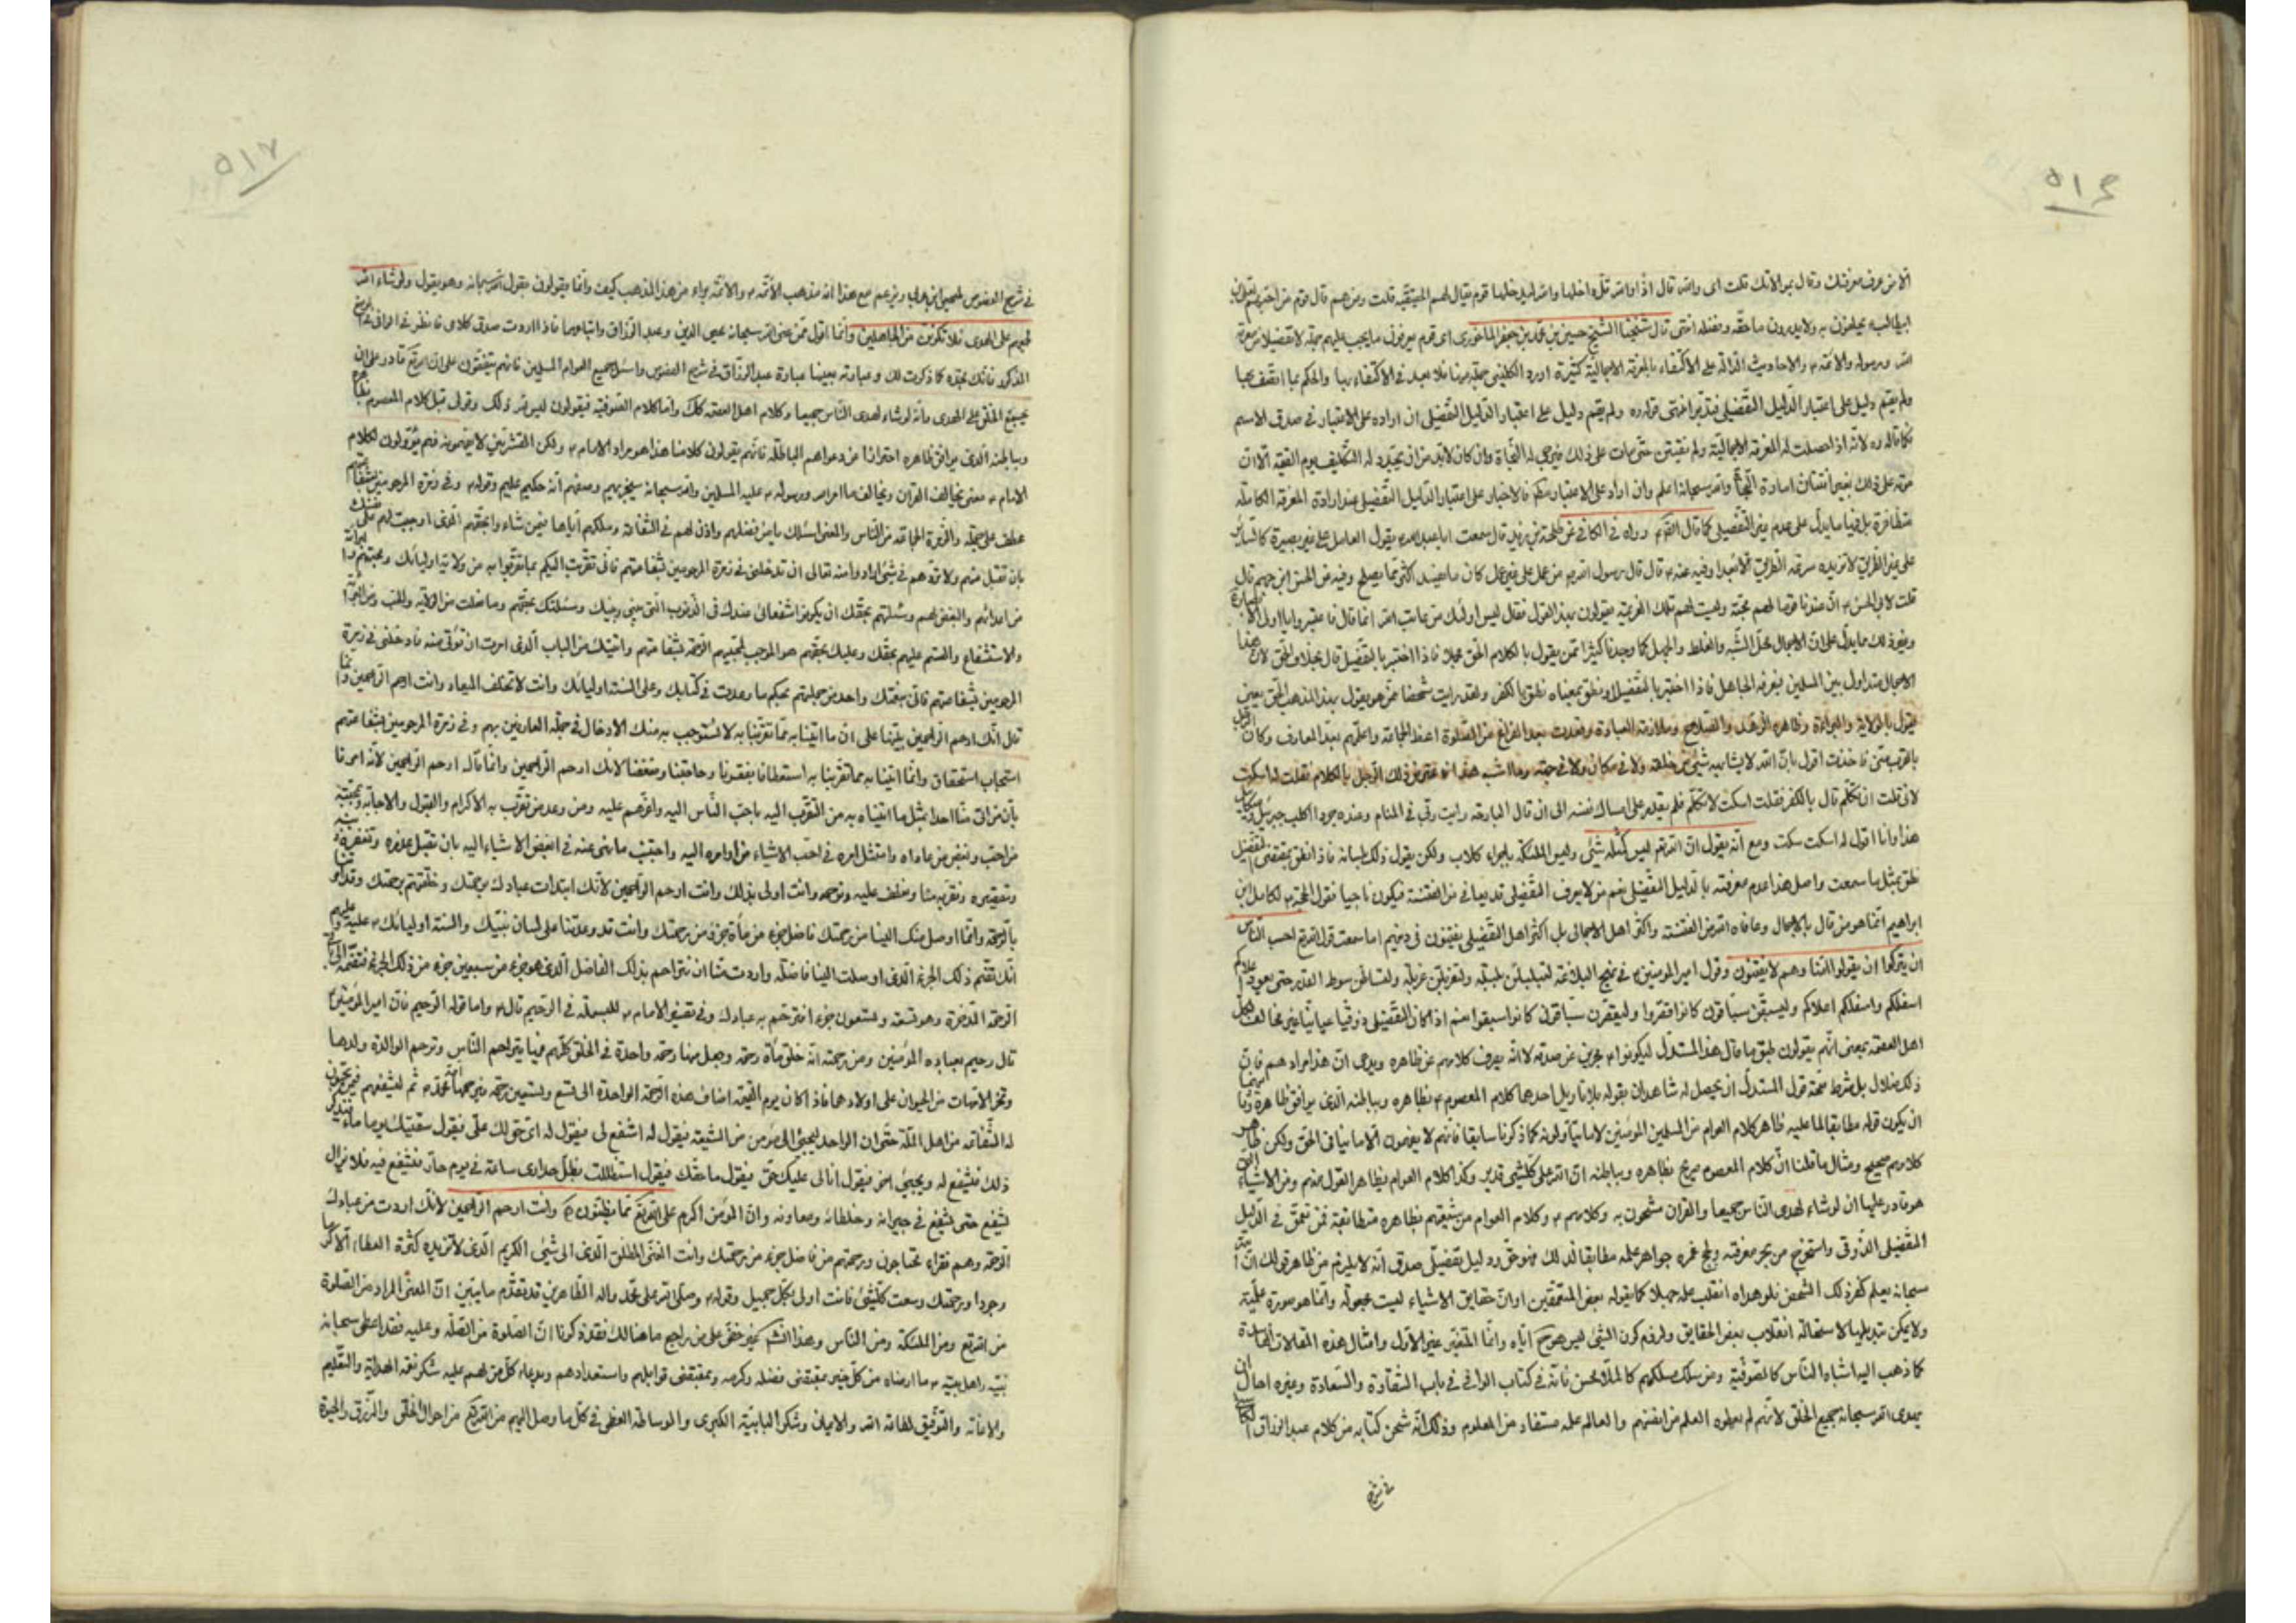 ٥١٦
الا من عرف معرفتك وقال بولايتك قلت اى والله قال اذا والله تقل داخلها والله ليدخلها قوم يقال لهم الحقية قلت ومن هم قال قوم من
ابيطالب يحلفون به ولا يدرون ما حقه وفضله انتهى قال شيخنا الشيخ حسين بن محمد بن جعفر الماحوزى اى قوم يعرفون ما يجب عليهم جملة لا تفصيلا من معرفة
الله ورسوله والائمة والاحاديث الدالة على الاكتفاء بالمعرفة الاجمالية كثيرة اورد الكلينى جملة منها فلا يبعد فى الاكتفاء بها والحكم بما اتصف بها
ولم يقم دليل على اعتبار الدليل التفصيلى فتدبر انتهى قوله ره ولم يقم دليل على اعتبار الدليل التفصيلى ان اراده على الاعتبار فى صدق الاسم
فكما قاله ره لانه اذا حصلت له المعرفة الاجمالية ولم تفتتن حتى مات على ذلك فيرجى له النجاة وان كان لا بد من ان يجدد له التكليف يوم القيمة الا ان
موته على ذلك بغير افتتان امارة النجاة والله سبحانه اعلم وان اراد على الاعتبار مطلقا فالاخبار على اعتبار الدليل التفصيلى عند ارادة المعرفة الكاملة
متظافرة بل فيها ما يدل على عدم غير التفصيلى كما قال رواه فى الكافى عن طلحة بن زيد قال سمعت ابا عبد الله يقول العامل على غير بصيرة كالسائر
على غير الطريق لا تزيده سرعة الطريق الا بعدا وفيه عنه قال قال رسول الله من عمل على غير علم كان ما يفسد اكثر مما يصلح وفيه عن الحسن ابن جهم قال
قلت لابى الحسن ان عندنا قوما لهم محبة وليست لهم تلك العزيمة يقولون بهذا القول فقال ليس اولئك من عاتب الله انما قال فاعتبروا يا اولى الابصار
وغير ذلك مما يدل على ان الاجمال محل الشبه والغلط والجهل كما وجدنا كثيرا ممن يقول بالكلام الحق مجملا فاذا اختبر بالتفصيل قال بخلاف الحق لان هذا
الاجمال متداول بين المسلمين فيعرفه الجاهل فاذا اختبر بالتفصيل او نطق بمعناه نطق بالكفر ولقد رايت شخصا ممن هو يقول بهذا المذهب الحق يعنى
يقول بالولاية والبراءة وظاهره الزهد والصلاح وملازمة العبادة وقعدت بعد الفراغ من الصلوة اعظ الجماعة واعلمهم بعض المعارف وكان الرجل
بالقرب منى فاخذت اقول بان الله لا يشابهه شىء من خلقه ولا فى مكان ولا فى جهة وما اشبه هذا فاعترض ذلك الرجل بالكلام فقلت له اسكت
لانى قلت ان تكلم قال بالكفر فقلت اسكت لا تتكلم فلم يقدر على امساك نفسه الى ان قال البارحة رايت ربى فى المنام وعنده جراء اكلب جبرئيل وميكائيل
هذا وانا اقول له اسكت سكت ومع انه يقول ان الله تعالى ليس كمثله شىء وليس الملئكة باجراء كلاب ولكن يقول ذلك بلسانه فاذا نطق بمقتضى التفصيل
نطق بمثل ما سمعت واصل هذا عدم معرفته بالدليل التفصيلى نعم من لا يعرف التفصيلى قد يعافى من الفتنة فيكون ناجيا فقول الحجة لكامل ابن
ابراهيم انما هو من قال بالاجمال وعافاه الله من الفتنة واكثر اهل الاجمالى بل اكثر اهل التفصيلى يفتنون فى دينهم اما سمعت قول الله تعالى احسب الناس
ان يتركوا ان يقولوا امنا وهم لا يفتنون وقول امير المؤمنين فى نهج البلاغة لتبلبلن بلبلة ولتغربلن غربلة ولتساطن سوط القدر حتى يعود
اسفلكم اعلاكم واسفلكم اعلاكم وليسبقن سباقون كانوا قصروا وليقصرن سباقون كانوا سبقوا نعم اذا كان التفصيلى ذوقيا عيانيا غير مخالف لاهل
اهل العصمة بمعنى انهم يقولون طبق ما قال هذا المستدل ليكونوا مخبرين عن صدقه لا انه يصرف كلامهم عن ظاهره ويدعى ان هذا مرادهم فان
ذلك ضلال بل شرط صحة قول المستدل ان يحصل له شاهدان بقوله بلا تاويل احدهما كلام المعصوم بظاهره وبباطنه الذى يوافق ظاهره
ان يكون قوله مطابقا لما عليه ظاهر كلام العوام من المسلمين المؤمنين كما ذكرنا سابقا فانهم لا يفهمون الا ما ينافى الحق ولكن ظاهر
كلامهم صحيح ومثال ما قلنا ان كلام المعصوم صريح بظاهره وبباطنه ان الله على كل شىء قدير وكذا كلام العوام بظاهر القول منهم ومن الاشياء التى
هو قادر عليها ان لو شاء لهدى الناس جميعا والقران مشحون به وكلامهم وكلام العوام من شيعتهم بظاهره متطابقة فمن تعمق فى الدليل
التفصيلى الذوقى واستخرج من بحر معرفته ولجج غمره جواهر علمه مطابقا لذلك فهو حق ودليل تفصيلى صدق انه لا يلزم من ظاهر قولك ان الله
سبحانه يعلم كفر ذلك الشخص فلو هداه انقلب علمه جهلا كما يقوله بعض المتعمقين او ان حقايق الاشياء ليست مجعولة وانما هو صورة علمية
ولا يمكن تبديلها لاستحالة انقلاب بعض الحقايق ولزوم كون الشىء ليس هو اياه وانما المتغير غير الاول وامثال هذه المقالات الفاسدة
كما ذهب اليه اشباه الناس كالصوفية ومن سلك مسلكهم كالملا محسن فانه فى كتاب الوافى فى باب الشقاوة والسعادة وغيره احال ان
يهدى الله سبحانه جميع الخلق لانهم لم يعطوه العلم من انفسهم والعالم علمه مستفاد من المعلوم وذلك انه شحن كتابه من كلام عبد الرزاق
فى شرح
٥١٧
فى شرح الفصوص لمحيى الدين ويزعم مع هذا انه مذهب الائمة والائمة براء من هذا المذهب كيف وانما يقولون بقول الله سبحانه وهو يقول ولو شاء الله
لجمعهم على الهدى فلا تكونن من الجاهلين وانما اقول ممن عنى الله سبحانه محيى الدين وعبد الرزاق واتباعهما فاذا اردت صدق كلامى فانظر فى الوافى
المذكور فانك تجده كما ذكرت لك وعبارته بعينها عبارة عبد الرزاق فى شرح الفصوص واسئل جميع العوام المسلمين فانهم يتفقون على ان الله تع قادر على ان
يجمع الخلق على الهدى وانه لو شاء لهدى الناس جميعا وكلام اهل العصمة كك واما كلام الصوفية فيقولون ليس له ذلك وقولى قبل كلام المعصوم بظاهره
وبباطنه الذى يوافق ظاهره احترازا عن دعواهم الباطلة فانهم يقولون كلامنا هذا هو مراد الامام ولكن القشريين لا يفهمونه فهم يؤولون كلام
الامام بمعنى يخالف القران ويخالف ما امر الله ورسوله عليه المسلمين والله سبحانه سيجزيهم وصفهم انه حكيم عليم وقوله وفى زمرة المرحومين بشفاعتهم
عطف على جملة والزمرة الجماعة من الناس والمعنى اسئلك يا من فضلهم واذن لهم فى الشفاعة وملكهم اياها فيمن شاء وبحقهم الذى اوجبت لهم على نفسك
بان تقبل منهم ولا تردهم فى شىء ارادوا منه تعالى ان تدخلنى فى زمرة المرحومين بشفاعتهم فانى تقربت اليكم بما تقربوا به من ولاية اوليائك ومحبتهم والبراءة
من اعدائهم والبغض لهم وسئلتهم بحقك ان يكونوا شفعائى عندك فى الذنوب التى بينى وبينك وسئلتك بحقهم وما فعلت من الولاية والحب ومن البراءة
والاستشفاع والقسم عليهم بحقك وعليك بحقهم هو الموجب لمحبيهم الرحمة بشفاعتهم واتيتك من الباب الذى امرت ان تؤتى منه فادخلنى فى زمرة
المرحومين بشفاعتهم فانى بنعمتك واحد من جملتهم بحكم ما وعدت فى كتابك وعلى السنة اوليائك وانت لا تخلف الميعاد وانت ارحم الراحمين وانما
قال انك ارحم الراحمين تنبيها على ان ما اتينا به مما تقربنا به لا نستوجب به منك الادخال فى جملة العارفين بهم وفى زمرة المرحومين بشفاعتهم
استيجاب استحقاق وانما اتينا به مما تقربنا به استعطافا بفقرنا وحاجتنا وضعفنا لانك ارحم الراحمين وانما قال ارحم الراحمين لانه امرنا
بان من اتى منا احدا بمثل ما اتيناه به من التقرب اليه باحب الناس اليه واعزهم عليه ومن وعد من تقرب به الاكرام والقبول والاجابة وبمحبته
من احب وبغض من عاداه وامتثل امره فى احب الاشياء من اوامره اليه واجتنب ما نهى عنه فى ابغض الاشياء اليه بان نقبل عذره ونغفر ذنبه
وتقصيره ونقربه منا ونعطف عليه ونرحمه وانت اولى بذلك وانت ارحم الراحمين لانك ابتدات عبادك برحمتك وخلقتهم برحمتك وقد امرتنا
بالرحمة وانما اوصل منك الينا من رحمتك فاضل جزء من مأة جزء من رحمتك وانت قد وعدتنا على لسان نبيك والسنة اوليائك عليه وعليهم
انك تقسم ذلك الجزء الذى اوصلت الينا فاضله واردت منا ان نتراحم بذلك الفاضل الذى هو جزء من سبعين جزء من ذلك الجزء فتضمه الى
الرحمة المدخرة وهو تسعة وتسعون جزء افترحم به عبادك وفى تفسير الامام للبسملة فى الرحيم قال واما قوله الرحيم فان امير المؤمنين
قال رحيم بعباده المؤمنين ومن رحمته انه خلق مأة رحمة وجعل منها رحمة واحدة فى الخلق كلهم فبها يتراحم الناس وترحم الوالدة ولدها
وتحن الامهات من الحيوان على اولادها فاذا كان يوم القيمة اضاف هذه الرحمة الواحدة الى تسع وتسعين رحمة فيرحم بها امة محمد ثم يشفعهم فيمن يحبون
له الشفاعة من اهل الملة حتى ان الواحد ليجىء الى مؤمن من الشيعة فيقول له اشفع لى فيقول له اى حق لك على فيقول سقيتك يوما ماء فيذكر
ذلك فيشفع له ويجىء اخر فيقول انا لى عليك حق فيقول ما حقك فيقول استظللت بظل جدارى ساعة فى يوم حار فيشفع فيه فلا يزال
يشفع حتى يشفع فى جيرانه وخلطائه ومعارفه وان المؤمن اكرم على الله تع مما يظنون وانت ارحم الراحمين لانك اردت من عبادك
الرحمة وهم فقراء محتاجون ورحمتهم من فاضل جزء من رحمتك وانت الغنى المطلق الذى الى شىء الكريم الذى لا تزيده كثرة العطاء الا كرما
وجودا ورحمتك وسعت كل شىء فانت اولى بكل جميل وقوله وصلى الله على محمد واله الطاهرين قد تقدم ما يبين ان المعنى المراد من الصلوة
من الله تع ومن الملئكة ومن الناس وهذا النشر غير خفى على من راجع ما هنالك فقد ذكرنا ان الصلوة من الصلة وعليه فقد اعطى سبحانه
نبيه واهل بيته ما ارضاه من كل خير بمقتضى فضله وكرمه وبمقتضى قوابلهم واستعدادهم وبدعاء كل من لهم عليه شكر نعمة الهداية والتعليم
والاعانة والتوفيق لطاعة الله والايمان وشكر البابية الكبرى والوساطة العظمى فى كل ما وصل اليهم من الله تع من احوال الخلق والرزق والحيوة